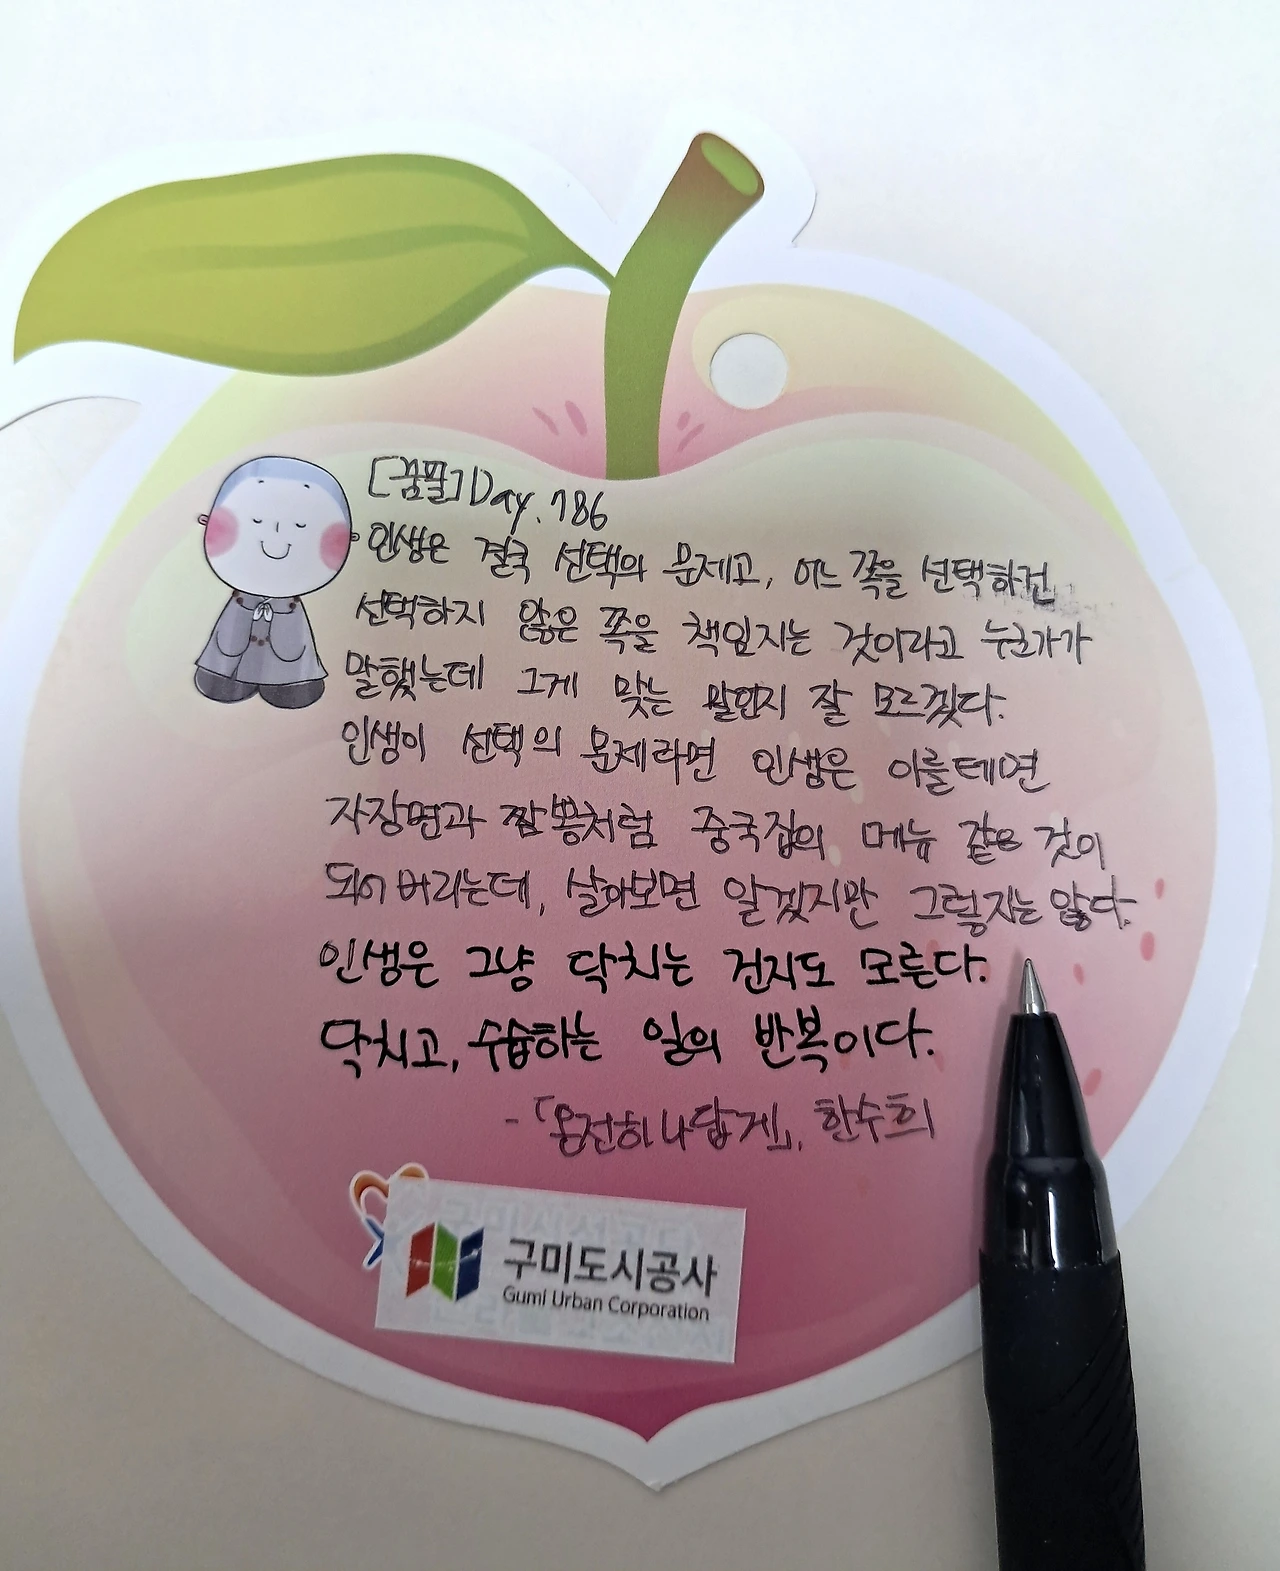 [꿈필] Day. 786
인생은 결국 선택의 문제고, 어느 쪽을 선택하건
선택하지 않은 쪽을 책임지는 것이라고 누군가가
말했는데 그게 맞는 말인지 잘 모르겠다.
인생이 선택의 문제라면 인생은 이를테면
자장면과 짬뽕처럼 중국집의 메뉴 같은 것이
되어버리는데, 살아보면 알겠지만 그렇지는 않다.
인생은 그냥 닥치는 건지도 모른다.
닥치고, 수습하는 일의 반복이다.
-「온전히 나답게」, 한수희
구미도시공사
Gumi Urban Corporation